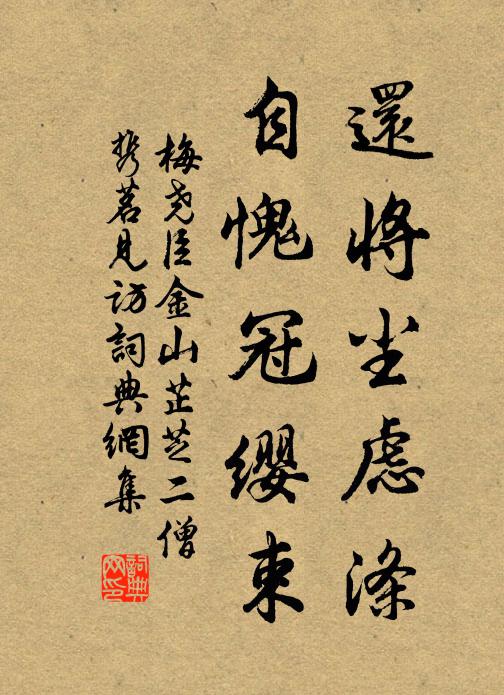 還將尘慮滌
自愧冠纓束
梅尧臣金山芷芝二僧
携茗見訪詞典網集
詞典
网印